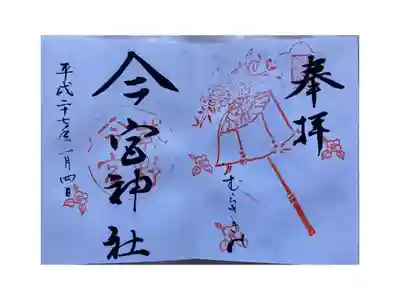 奉拝
むらさき野
今宮神社
平成二十七年一月四日